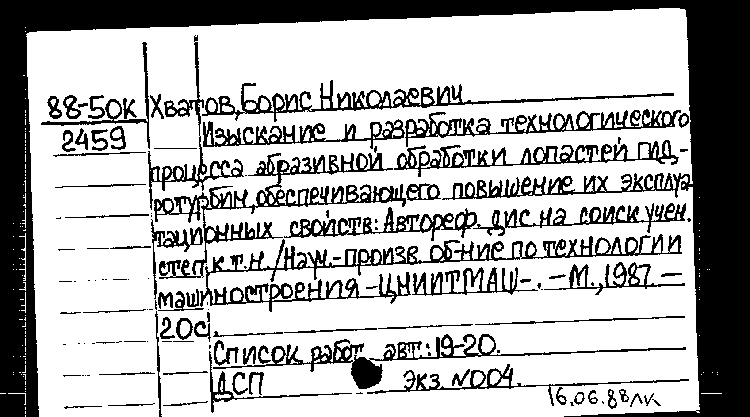 88-50К Хватов, Борис Николаевич.
2459 Изыскание и разработка технологического
процесса абразивной обработки лопастей гид-
ротурбин, обеспечивающего повышение их эксплуа-
тационных свойств: Автореф. дис. на соиск. учен.
степ. к.т.н. /Науч.-произв. об-ние по технологии
машиностроения -ЦНИИТМАШ-. -М., 1987. -
20с.
Список работ авт.: 19-20.
ДСП экз. №004.
16.06.88 лк